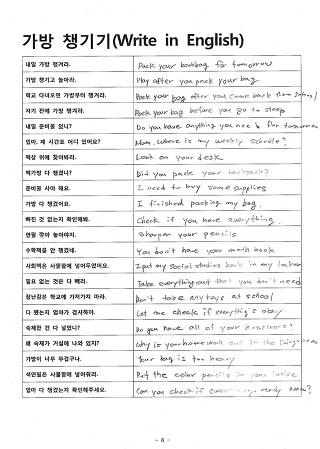 가방 챙기기(Write in English)
내일 가방 챙겨라. Pack your bookbag for tomorrow
가방 챙기고 놀아라. Play after you pack your bag
학교 다녀오면 가방부터 챙겨라. Pack your bag after you come back from school
자기 전에 가방 챙겨라. Pack your bag before you go to sleep
내일 준비물 있니? Do you have anything you need for tomorrow
엄마, 제 시간표 어디 있어요? Mom, where is my weekly
책상 위에 찾아봐라. Look on your desk
책가방 다 챙겼니? Did you pack your backpack?
준비물 사야 해요. I need to buy some supplies
가방 다 챙겼어요. I finished packing my bag.
빠진 것 없는지 확인해봐. Check if you have everything.
연필 깎아 놓아야지. Sharpen your pencils
수학책을 안 챙겼네. You don't have your math book
사회책은 사물함에 넣어두었어요. I put my social studies book in my
필요 없는 것은 다 빼라. Take everything out that you don't need
장난감은 학교에 가져가지 마라. Don't take any toys at school
다 됐는지 엄마가 검사하마. Let me check if everything's okay
숙제한 건 다 넣었니? Do you have all of your homework?
왜 숙제가 거실에 나와 있지? Why is your homework out in the living room
가방이 너무 무겁구나. Your bag is too heavy
색연필은 사물함에 넣어둬라. Put the color pencils in your
엄마 다 챙겼는지 확인해주세요. Can you check if ready
- 6 -